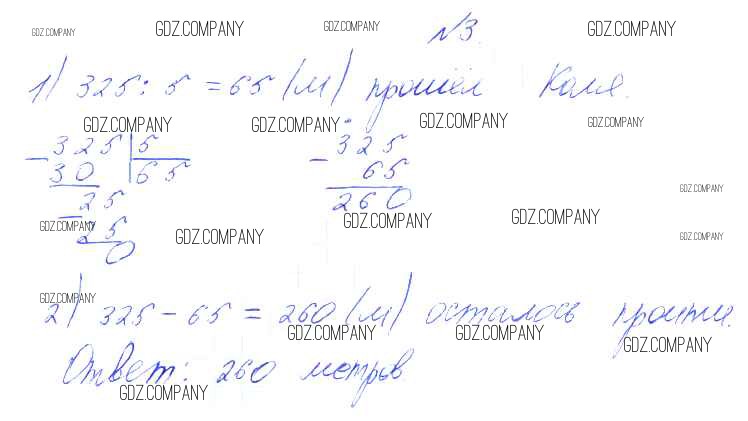 GDZ.COMPANY GDZ.COMPANY GDZ.COMPANY №3. GDZ.COMPANY
1) 325 : 5 = 65 (м) прошёл Коля.
GDZ.COMPANY GDZ.COMPANY GDZ.COMPANY GDZ.COMPANY
325 | 5
- 30 | 65
25
- 25
0
- 325
65
260
GDZ.COMPANY
GDZ.COMPANY GDZ.COMPANY GDZ.COMPANY GDZ.COMPANY GDZ.COMPANY
GDZ.COMPANY
2) 325 - 65 = 260 (м) осталось пройти.
GDZ.COMPANY GDZ.COMPANY GDZ.COMPANY
Ответ: 260 метров
GDZ.COMPANY